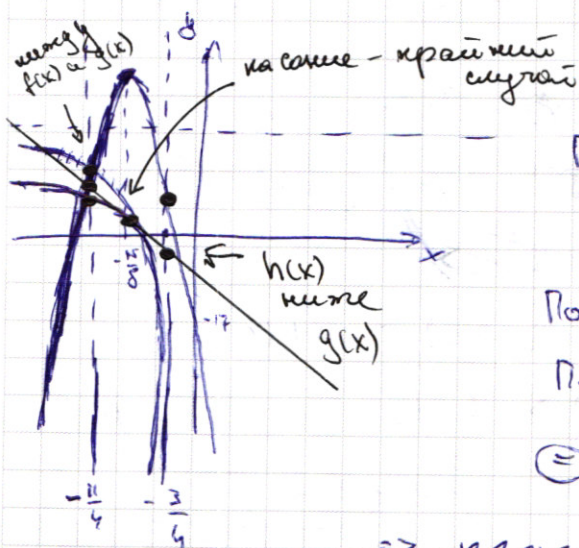 между
f(x) и g(x)
y
касание - крайний
случай
x
h(x)
ниже
g(x)
-17
По
П
=
-11/4
-3/4